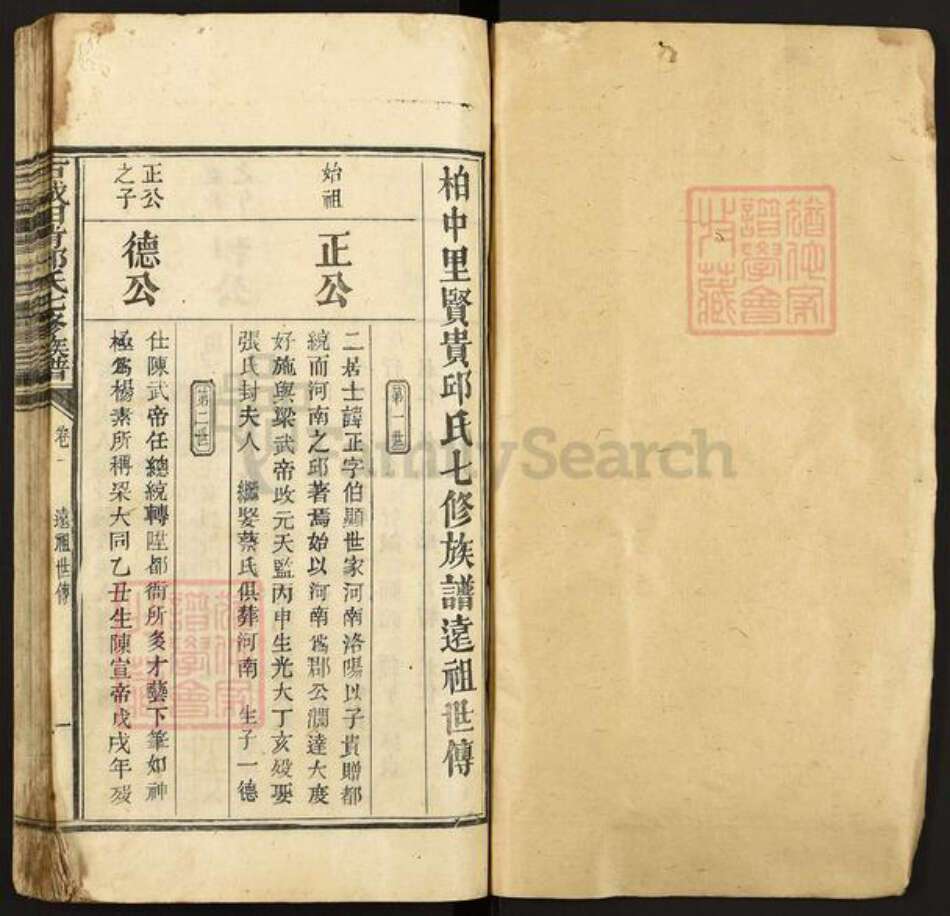 柏中里賢貴邱氏七修族譜遠祖世傳
第一世
始祖
正公
二居士諱正字伯顯世家河南洛陽以子貴贈都
統而河南之邱著焉始以河南為郡公濶達大度
好施與梁武帝改元天監丙申生光大丁亥歿娶
張氏封夫人 繼娶蔡氏俱葬河南 生子一德
第二世
正公
之子
德公
仕陳武帝任總統轉陞都衙所多才藝下筆如神
極為楊素所稱梁大同乙丑生陳宣帝戊戌年歿
邱氏七修族譜
卷一
遠祖世傳
一
譜學會
FamilySearch